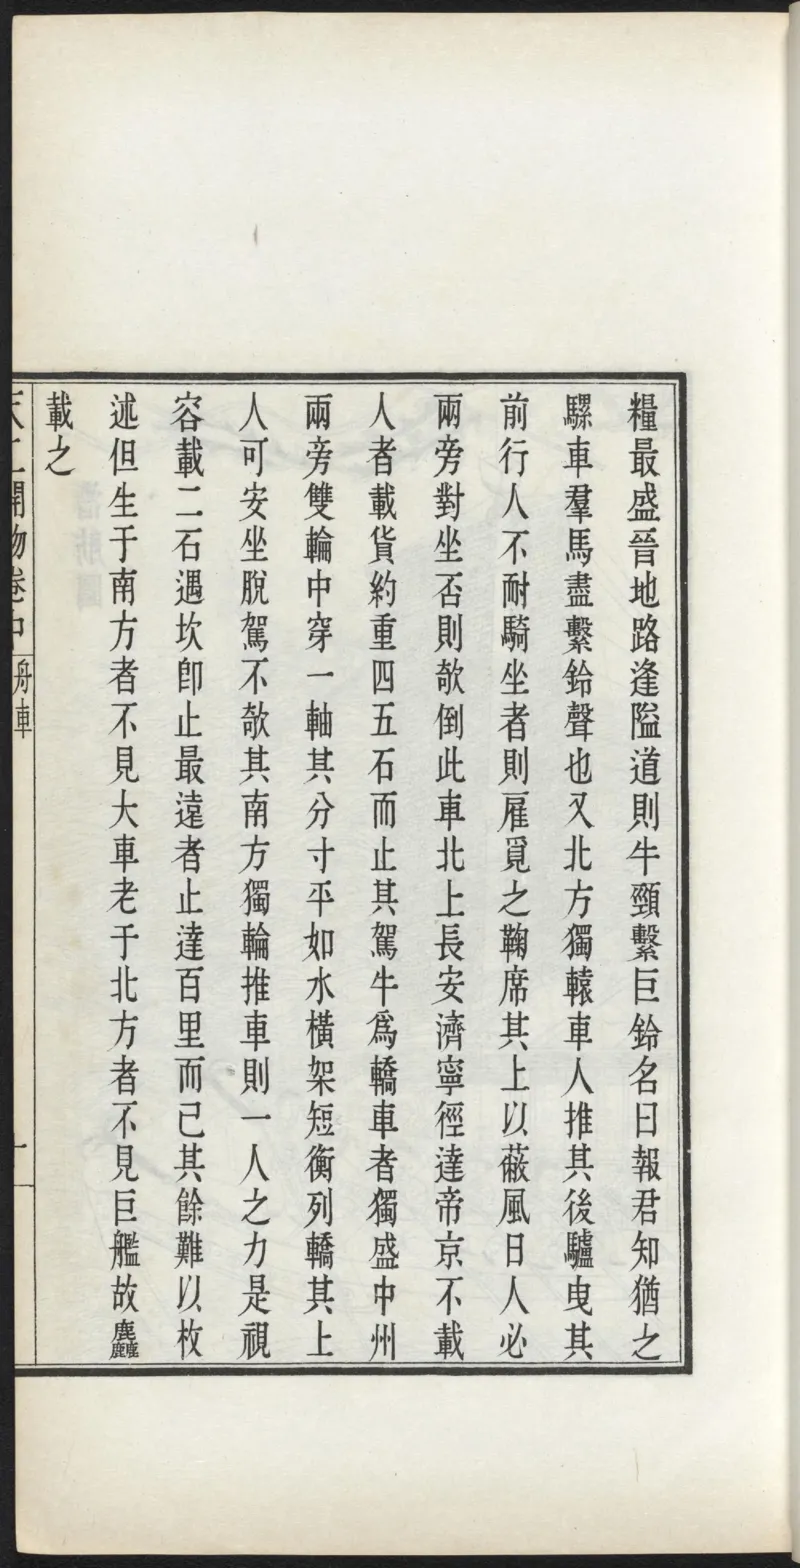 糧最盛晉地路逢隘道則牛頸繫巨鈴名曰報君知猶之
騾車羣馬盡繫鈴聲也又北方獨轅車人推其後驢曳其
前行人不耐騎坐者則雇覓之鞠席其上以蔽風日人必
兩旁對坐否則欹倒此車北上長安濟寧徑達帝京不載
人者載貨約重四五石而止其駕牛爲轎車者獨盛中州
兩旁雙輪中穿一軸其分寸平如水橫架短衡列轎其上
人可安坐脫駕不欹其南方獨輪推車則一人之力是視
容載二石遇坎卽止最遠者止達百里而已其餘難以枚
述但生于南方者不見大車老于北方者不見巨艦故麤
載之
天工開物卷中 舟車